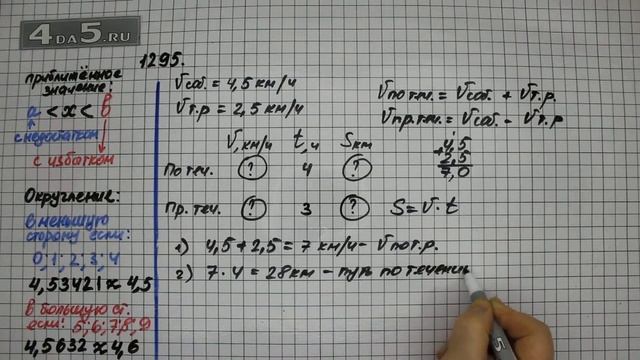 4DA5.RU
приближённое
значение:
a < x < b
с недостатком
с избытком
Округление:
в меньшую
сторону если:
0; 1; 2; 3; 4
4,53421 ≈ 4,5
в большую ст.
если: 5; 6; 7; 8; 9
4,5632 ≈ 4,6
1295.
Vсоб. = 4,5 км/ч
Vт.р = 2,5 км/ч
V, км/ч t, ч S км
По теч. ? 4 ?
Пр. теч. ? 3 ?
Vпо т.р. = Vсоб. + Vт.р.
Vпр.т.р. = Vсоб. - Vт.р
4,5
+ 2,5
7,0
S = V · t
1) 4,5 + 2,5 = 7 км/ч - Vпо т.р.
2) 7 · 4 = 28 км - путь по течению
5